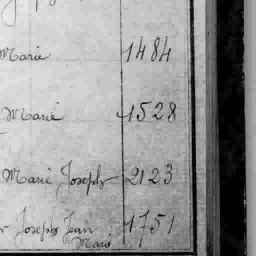 Marie 1484
Marie 1528
Marie Joseph 2123
Joseph Jean 1751
Marie